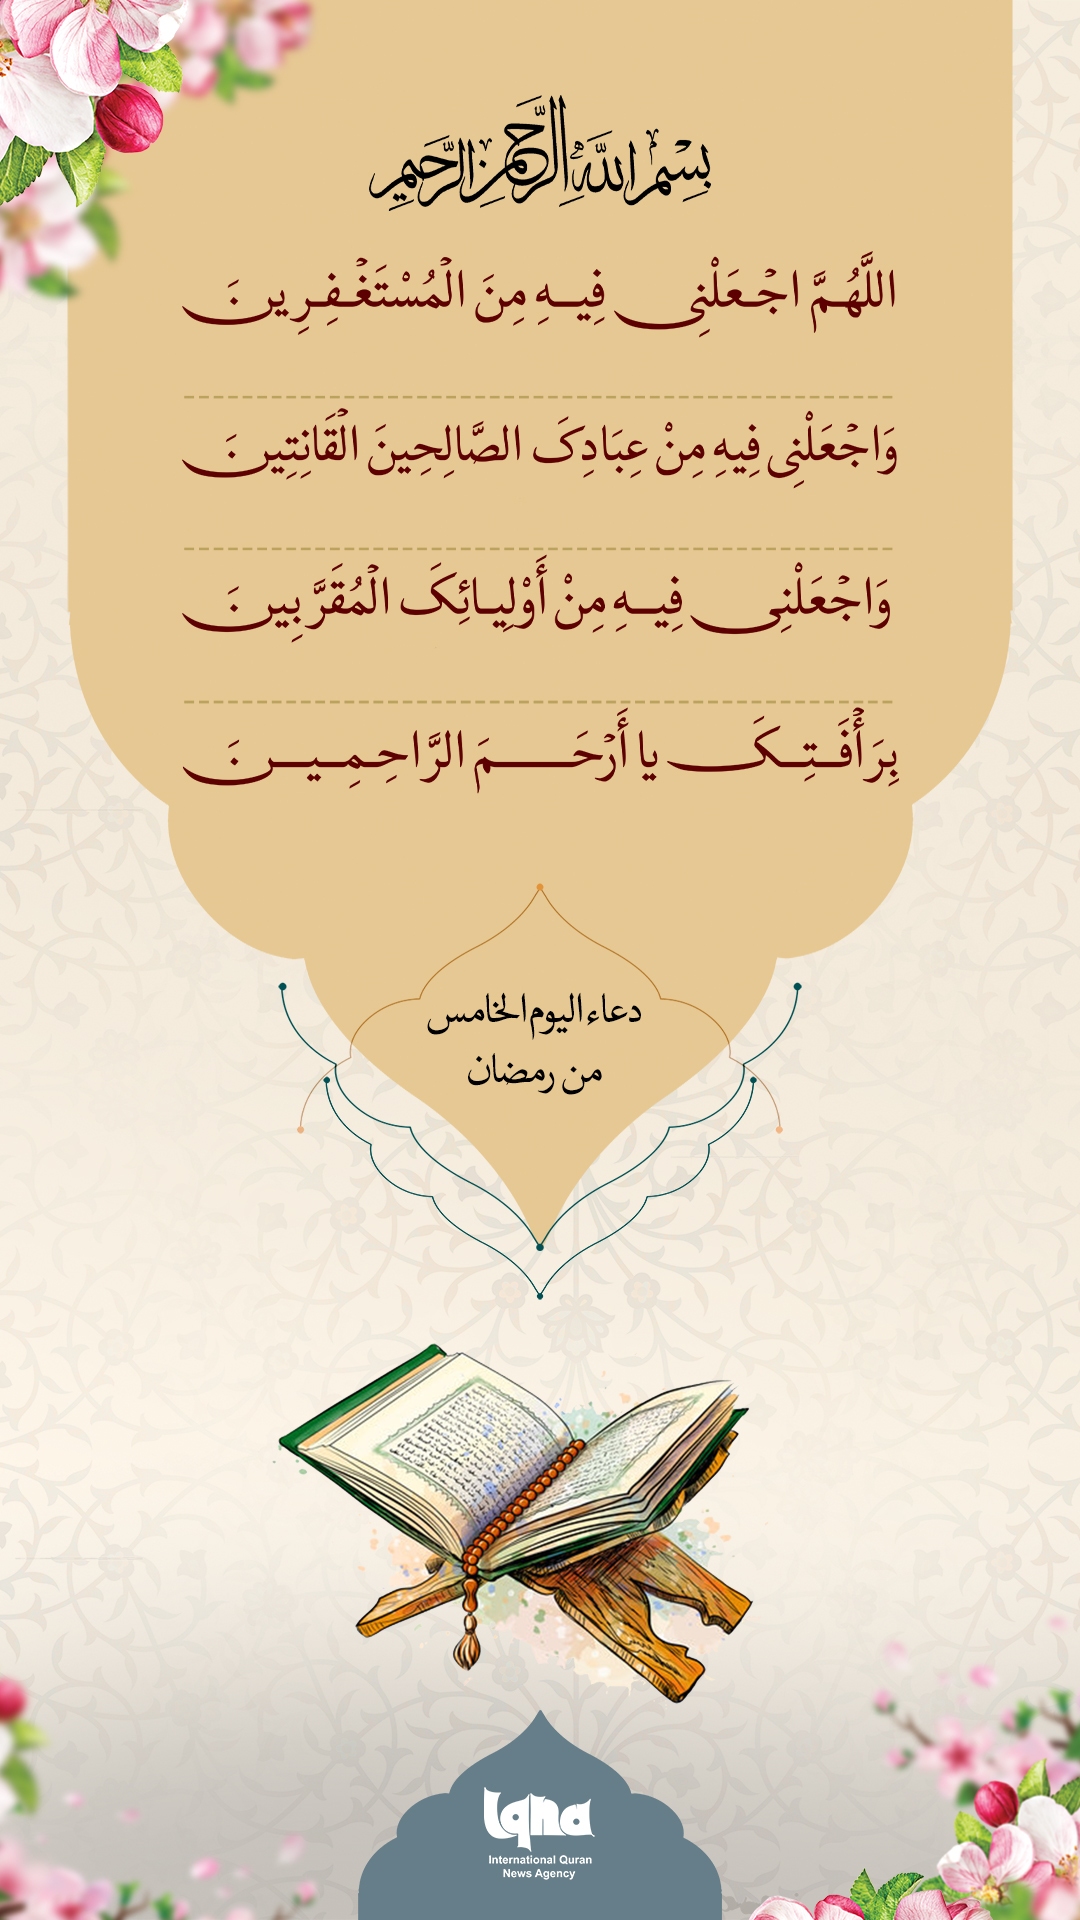 بِسْمِ اللَّهِ الرَّحْمَنِ الرَّحِيمِ
اللَّهُمَّ اجْعَلْنِی فِيهِ مِنَ الْمُسْتَغْفِرِينَ
وَاجْعَلْنِی فِيهِ مِنْ عِبَادِکَ الصَّالِحِينَ الْقَانِتِينَ
وَاجْعَلْنِی فِيهِ مِنْ أَوْلِيائِکَ الْمُقَرَّبِينَ
بِرَأْفَتِکَ يا أَرْحَمَ الرَّاحِمِينَ
دعاء اليوم الخامس
من رمضان
Iqna
International Quran
News Agency